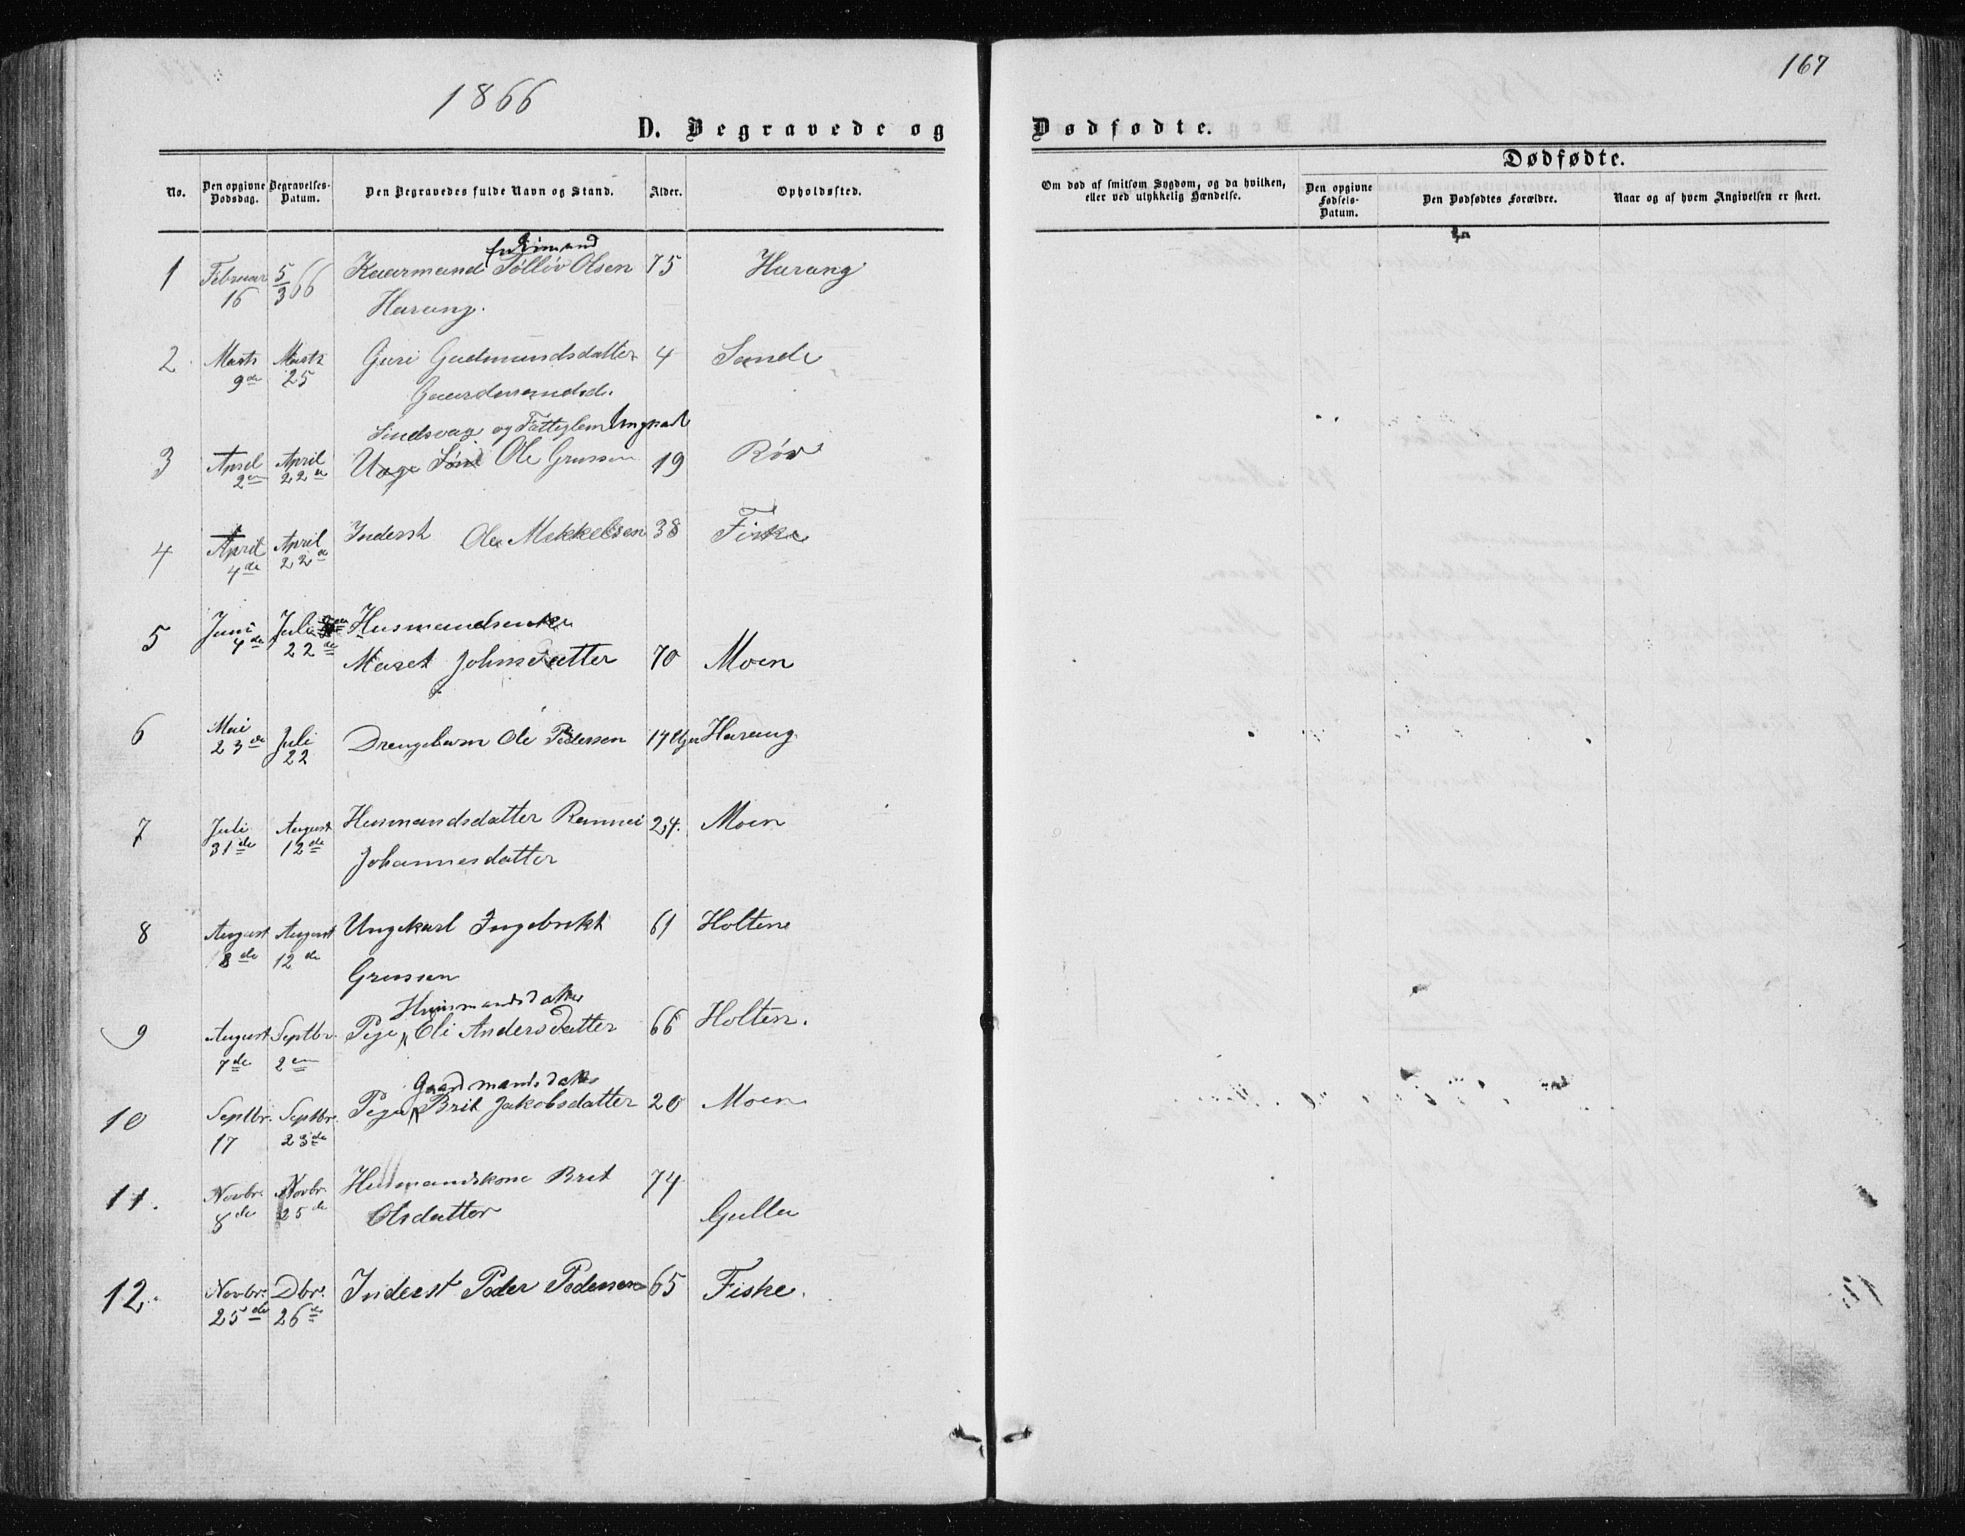 1866
167
D. Begravede og
Dødfødte.
Dødfødte.
No.
Den opgivne Dødsdag.
Begravelses-Datum.
Den Begravedes fulde Navn og Stand.
Alder.
Opholdssted.
Om død af smitsom Sygdom, og da hvilken, eller ved ulykkelig Hændelse.
Den opgivne Fødsels-Datum.
Den Dødfødtes Forældre.
Naar og af hvem Angivelsen er skeet.
1 Februar 16 5/3 66 Kaarmand Tølløv Olsen 75 Harang
Harang.
2 Marts 9de Marts 25 Guri Gudmundsdatter 4 Sande
Gaardmandsd.
og Fattiglem Ungkarl
3 April 2en April 22de Unge Ole Grussen 19 Røv
4 April 4de April 22de Inderst Ole Mekkelsen 38 Fiske
5 Juni 4de Juli 22de Husmandsenke
Maret Johnsdatter 70 Moen
6 Mai 23de Juli 22 Drengebarn Ole Pedersen 14 Uger Harang
7 Juli 31de August 12de Husmandsdatter Rannei 24. Moen
Johannesdatter
8 August 8de August 12de Ungekarl Ingebrikt 61 Holten
Grussen
Husmandsdatter
9 August 7de Septbr. 2en Pige Eli Andersdatter 66 Holten.
Gaardmandsdatter
10 Septbr. 17 Septbr. 23de Pige Brit Jakobsdatter 20 Moen
11. Novbr. 8de Novbr. 25de Husmandskone Brit 74
Olsdatter Gulla
12. Novbr. 25de Dbr. 26de Inderst Peder Pedersen 65 Fiske.